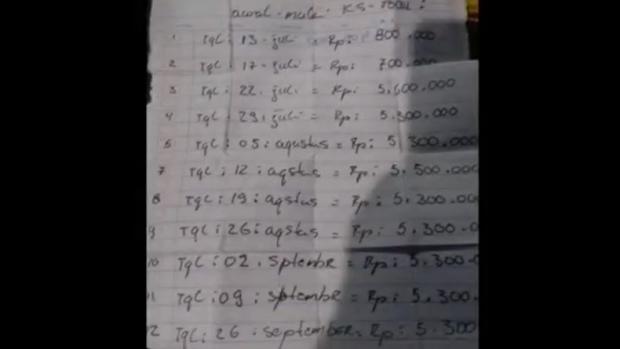 awal mula KS-Tool:
1 TgL: 13 - juLi = Rp: 800.000
2 TgL: 17 - juLi = Rp: 700.000
3 TgL: 22. juLi. = Rp: 5.600.000
4 TgL: 29. juLi. = Rp: 5.300.000
5 TgL: 05: agustus = Rp: 5.300.000
7 TgL: 12: agstus = Rp: 5.500.000
8 TgL: 19: agstus = Rp: 5.300.00
9 TgL: 26: agstus = Rp: 5.300.0
10 TgL: 02. Sptembr = Rp: 5.300.
11 TgL: 09: sptembr = Rp: 5.300.
12 TgL: 26: september. Rp: 5.300